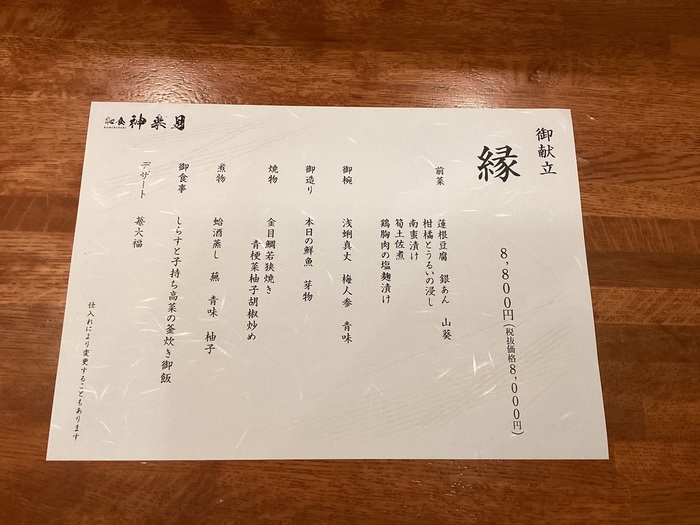 御献立
縁
8,800円(税抜価格8,000円)
前菜
蓮根豆腐 銀あん 山葵
柑橘とうるいの浸し
南蛮漬け
筍土佐煮
鶏胸肉の塩麹漬け
御椀
浅蜊真丈 梅人参 青味
御造り
本日の鮮魚 芽物
焼物
金目鯛若狭焼き
青梗菜柚子胡椒炒め
煮物
蛤酒蒸し 蕪 青味 柚子
御食事
しらすと子持ち高菜の釜炊き御飯
デザート
苺大福
仕入れにより変更することもあります
和食 神楽月